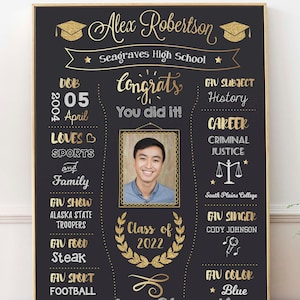 Alex Robertson
Seagraves High School
DOB
2004
05
April
LOVES
SPORTS
and
Family
FAV SHOW
ALASKA STATE
TROOPERS
FAV FOOD
Steak
FAV SPORT
FOOTBALL
Congrats
You did it!
Class of
2022
FAV SUBJECT
History
CAREER
CRIMINAL
JUSTICE
South Plains College
FAV SINGER
CODY JOHNSON
FAV COLOR
Blue